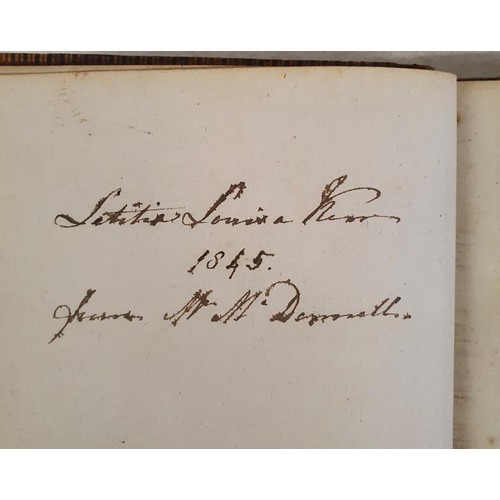 Letitia Louisa Kerr
1845.
from Mr. McDonnell.